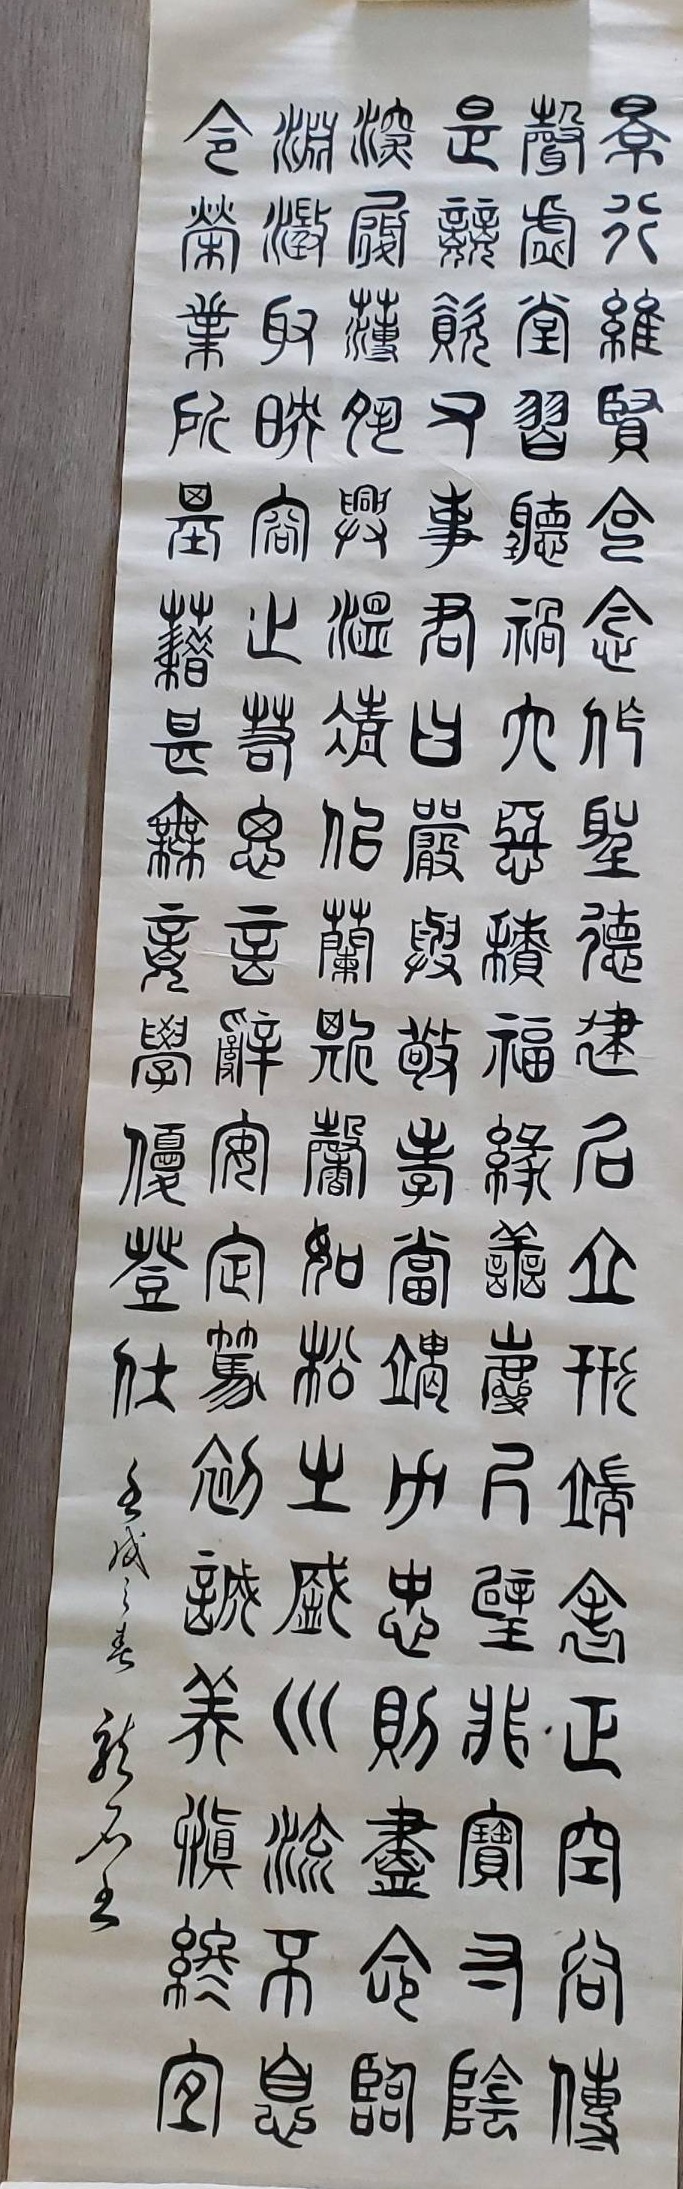 景行維賢克念作聖德建名立形端表正空谷傳
聲虛堂習聽禍因惡積福緣善慶尺璧非寶寸陰
是競資父事君曰嚴與敬孝當竭力忠則盡命臨
深履薄夙興溫凊似蘭斯馨如松之盛川流不息
淵澄取映容止若思言辭安定篤初誠美慎終宜
令榮業所基藉甚無竟學優登仕 壬戌之春 龍石书